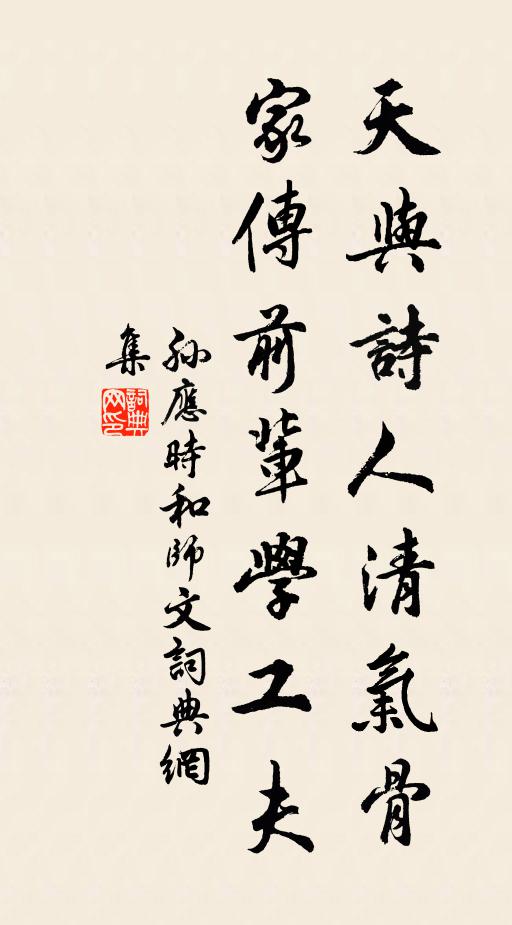 天與詩人清氣骨
家傳前輩學工夫
孫應時和師文詞典網
集
詞典
网印